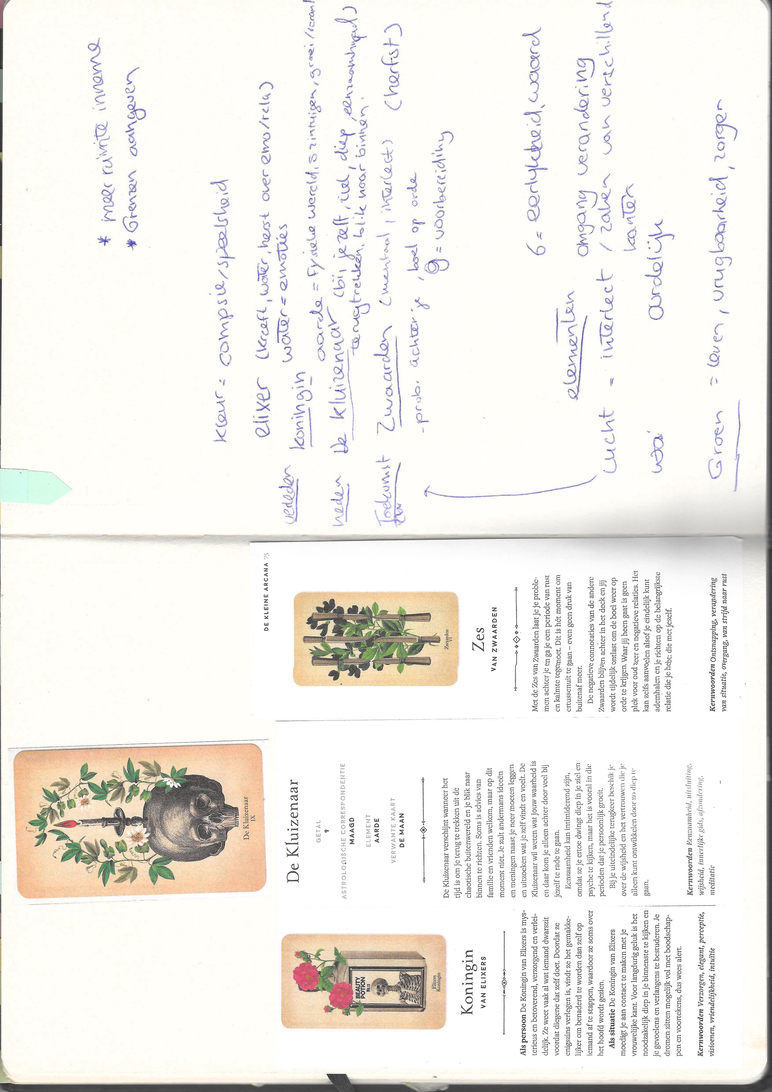 * meer ruimte inneme
* Grenzen aangeven
Kleur = compsie/speelsheid
elixer (kreeft, water, heerst over emo/rela)
water = emoties
verleden koningin aarde = fysieke wereld, 5 zintuigen, groei
heden De kluizenaar (bij jezelf, ziel, diep, eenzaamheid)
terugtrekken, blik naar binnen.
Toekomst Zwaarden (mentaal, intellect) (herfst)
- prob. achter je, boel op orde
9 = voorbereiding
6 = eerlijkheid, waard
elementen omgang verandering
Lucht = intellect / zaken van verschillend
kanten
aardelijk
Groen = leven, vrugbaarheid, zorgen
De Kluizenaar
IX
De Kluizenaar
GETAL
9
ASTROLOGISCHE CORRESPONDENTIE
MAAGD
ELEMENT
AARDE
VERWANTE KAART
DE MAAN
De Kluizenaar verschijnt wanneer het
tijd is om je terug te trekken uit de
chaotische buitenwereld en je blik naar
binnen te richten. Soms is advies van
familie en vrienden welkom, maar op dit
moment niet. Je zult andermans ideeën
en meningen naast je neer moeten leggen
en uitzoeken wat je zelf vindt en voelt. De
Kluizenaar wil weten wat jouw waarheid is
en daar kom je alleen achter door veel bij
jezelf te rade te gaan.
Eenzaamheid kan intimiderend zijn,
omdat ze je ertoe dwingt diep in je ziel en
psyche te kijken, maar het is vooral in die
perioden dat je persoonlijk groeit.
Bij je uiteindelijke terugkeer beschik je
over de wijsheid en het vertrouwen die je
alleen kunt ontwikkelen door zo diep te
gaan.
Kernwoorden Eenzaamheid, uitsluiting,
wijsheid, innerlijke gids, afzondering,
meditatie
BEAUTY
POTION
Elixers
Koningin
Koningin
VAN ELIXERS
Als persoon De Koningin van Elixers is mys-
terieus en betoverend, verzorgend en verlei-
delijk. Ze weet vaak al wat iemand dwarszit
voordat diegene dat zelf doet. Doordat ze
enigszins verlegen is, vindt ze het gemakke-
lijker om benaderd te worden dan zelf op
iemand af te stappen, waardoor ze soms over
het hoofd wordt gezien.
Als situatie De Koningin van Elixers
moedigt je aan contact te maken met je
vrouwelijke kant. Voor langdurig geluk is het
noodzakelijk diep in je binnenste te kijken en
je gevoelens en verlangens te bestuderen. Je
dromen zitten mogelijk vol met boodschap-
pen en voortekens, dus wees alert.
Kernwoorden Verzorgen, elegant, perceptie,
visioenen, vriendelijkheid, intuïtie
DE KLEINE ARCANA 75
Zwaarden
Zes
VAN ZWAARDEN
Met de Zes van Zwaarden laat je je proble-
men achter je en ga je een periode van rust
en kalmte tegemoet. Dit is hét moment om
ertussenuit te gaan – even geen druk van
buitenaf meer.
De negatieve connotaties van de andere
Zwaarden blijven achter in het deck en jij
wordt tijdelijk ontlast om de boel weer op
orde te krijgen. Waar jij heen gaat is geen
plek voor oud zeer en negatieve relaties. Het
kan zelfs aanvoelen alsof je eindelijk kunt
ademhalen en je richten op de belangrijkste
relatie die je hebt: die met jezelf.
Kernwoorden Ontsnapping, verandering
van situatie, overgang, van strijd naar rust